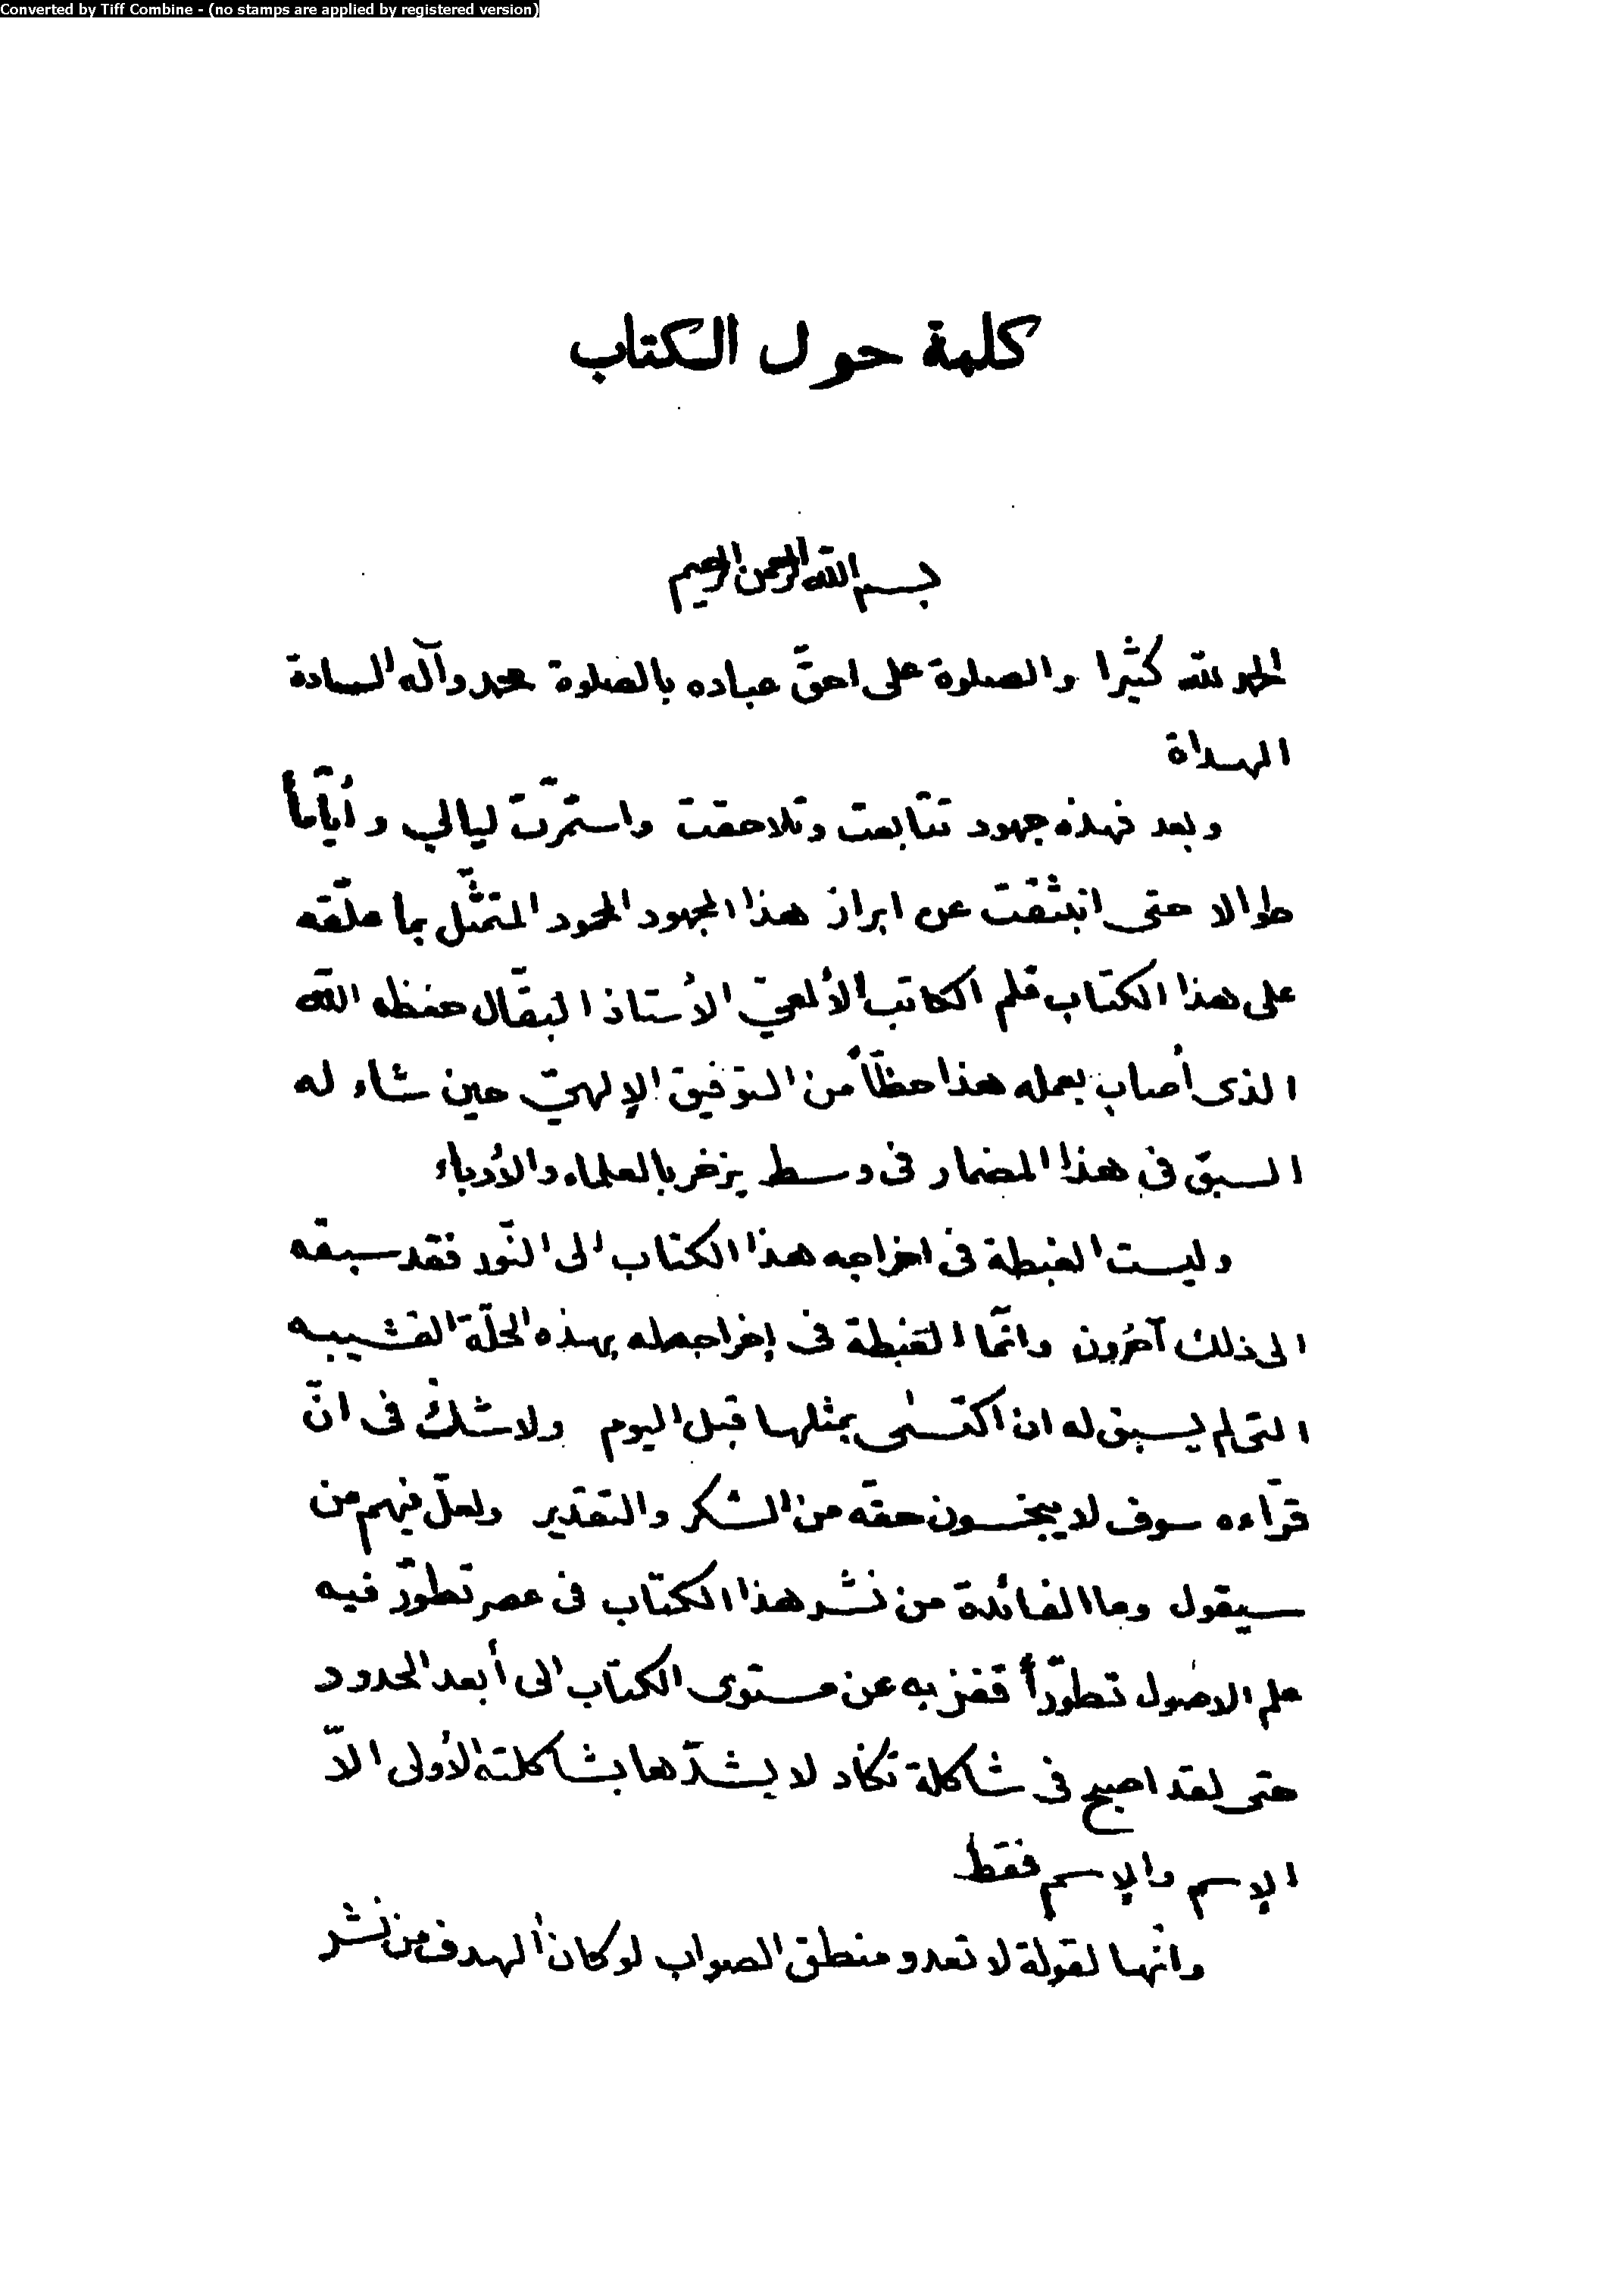 Converted by Tiff Combine - (no stamps are applied by registered version)
كلمة حول الكتاب
بسم الله الرحمن الرحيم
الحمد لله كثيرا والصلوة على احقّ عباده بالصلوة محمد وآله السادة
الهداة
وبعد فهذه جهود تتابعت وتلاحقت واستمرّت ليالي وأيّاماً
طوالا حتى انبثقت عن ابراز هذا المجهود المحمود المتمثّل بما علّقه
على هذا الكتاب قلم الكاتب الألمعيّ الأستاذ البقّال حفظه الله
الذى أصاب بعمله هذا حظّاً من التوفيق الإلهيّ حين شاء له
السبق فى هذا المضمار فى وسط يزخر بالعلماء والأدباء
وليست الغبطة فى اخراجه هذا الكتاب الى النّور فقد سبقه
الى ذلك آخرون وانّما الغبطة فى إخراجه له بهذه الحلّة القشيبه
التى لم يسبق له ان اكتسى بمثلها قبل اليوم ولا شكّ فى انّ
قرّاءه سوف لا يبخسون حقّه من الشكر والتقدير ولعلّ فيهم من
سيقول وما الفائدة من نشر هذا الكتاب فى عصر تطوّر فيه
علم الاصول تطوّراً قفز به عن مستوى الكتاب الى أبعد الحدود
حتى لقد اصبح فى شاكلة تكاد لا يشدّها بشاكلته الأولى الاّ
الإسم والإسم فقط
وانّها لقولة لا تعدو منطق الصواب لو كان الهدف من نشر